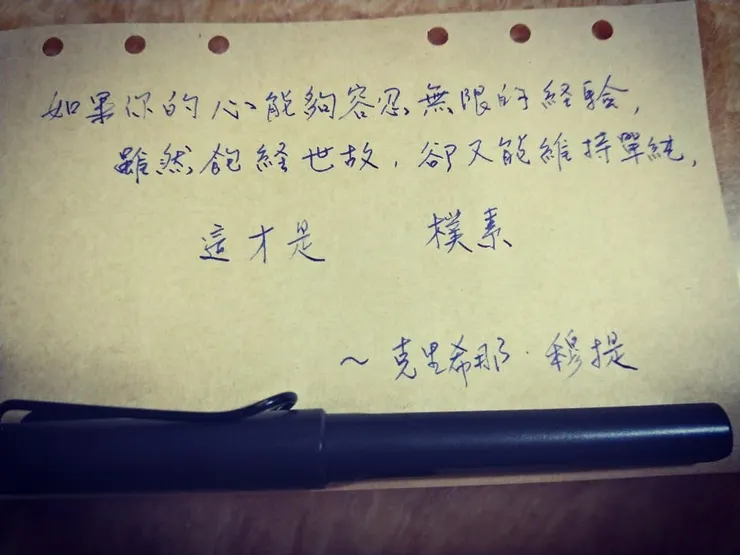 如果你的心能夠容忍無限的経驗,
雖然飽経世故,卻又能維持單純,
這才是 樸素
~克里希那·穆提